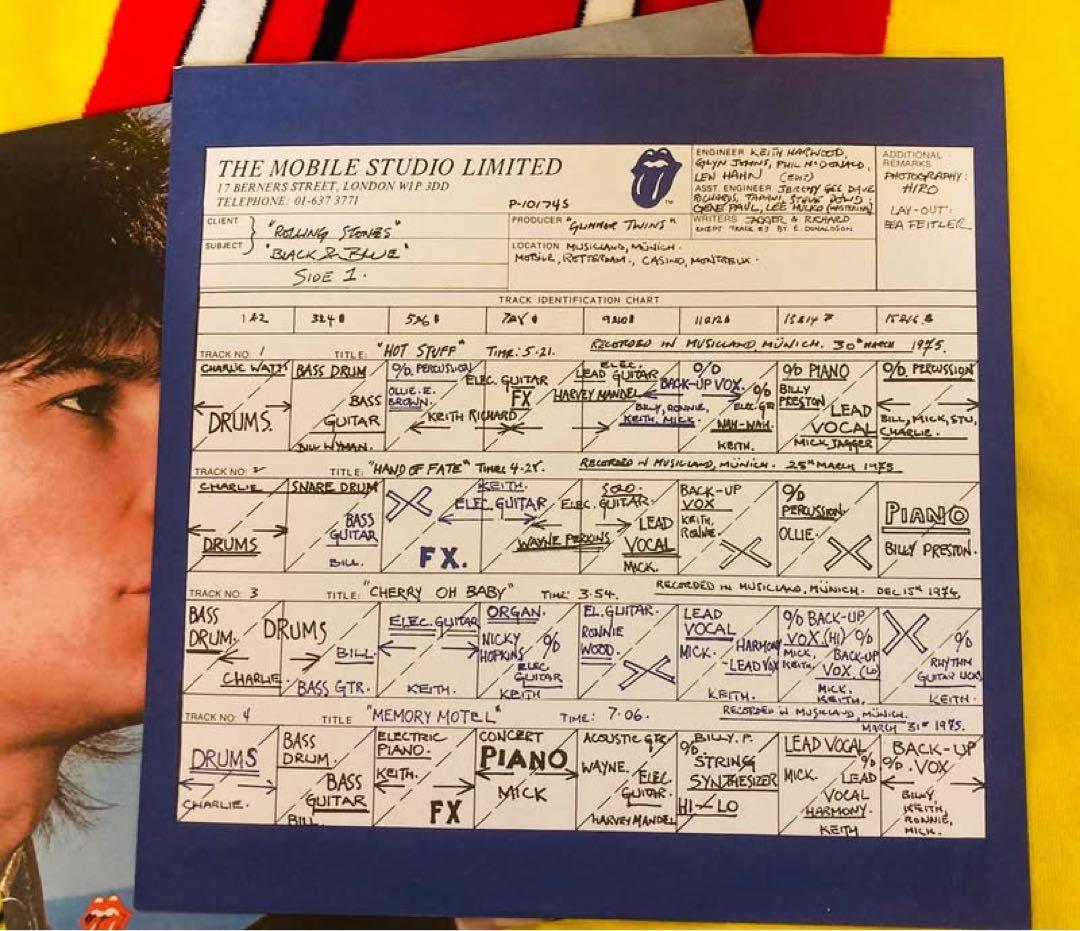 THE MOBILE STUDIO LIMITED
17 BERNERS STREET, LONDON W1P 3DD
TELEPHONE: 01-637 3771
P-10174S
TM
ENGINEER KEITH HARWOOD,
GLYN JOHNS, PHIL McDONALD,
LEW HAHN (EDIT)
ASST. ENGINEER JEREMY GEE DAVE
RICHARDS, TAPANI, STEVE DOWD;
GENE PAUL, LEE HULKO (MASTERING)
WRITERS JAGGER & RICHARD
EXCEPT TRACK #3 BY E. DONALDSON
ADDITIONAL
REMARKS
PHOTOGRAPHY:
HIRO
LAY-OUT:
BEA FEITLER
CLIENT "ROLLING STONES"
SUBJECT "BLACK & BLUE"
SIDE 1.
PRODUCER "GLIMMER TWINS"
LOCATION MUSICLAND, MÜNICH.
MOBILE, ROTTERDAM., CASINO, MONTREUX.
TRACK IDENTIFICATION CHART
1&2 3&4 5&6 7&8 9&10 11&12 15&16
TRACK NO: 1 TITLE: "HOT STUFF" TIME: 5.21. RECORDED IN MUSICLAND, MÜNICH. 30th MARCH 1975.
CHARLIE WATTS
DRUMS.
BASS DRUM
BASS
GUITAR
BILL WYMAN.
O/D. PERCUSSION
OLLIE. E.
BROWN.
ELEC. GUITAR
FX
KEITH RICHARD
ELEC.
LEAD GUITAR
HARVEY MANDEL
O/D
BACK-UP VOX.
BILLY, RONNIE,
KEITH, MICK.
O/D
ELEC. GTR
WAH-WAH
KEITH.
O/D PIANO
BILLY
PRESTON
LEAD
VOCAL
MICK JAGGER
O/D. PERCUSSION
BILL, MICK, STU,
CHARLIE.
TRACK NO: 2 TITLE: "HAND OF FATE" TIME: 4.28. RECORDED IN MUSICLAND, MÜNICH. 25th MARCH 1975
CHARLIE
DRUMS
SNARE DRUM
BASS
GUITAR
BILL.
X
FX.
KEITH.
ELEC. GUITAR
SOLO.
ELEC. GUITAR.
WAYNE PERKINS
LEAD
VOCAL
MICK.
BACK-UP
VOX
KEITH,
RONNIE.
X
O/D
PERCUSSION
OLLIE.
X
PIANO
BILLY PRESTON.
TRACK NO: 3 TITLE: "CHERRY OH BABY" TIME: 3.54. RECORDED IN MUSICLAND, MÜNICH. DEC 15th 1974.
BASS
DRUM.
DRUMS
CHARLIE.
BILL.
BASS GTR.
ELEC. GUITAR
KEITH.
ORGAN.
NICKY
HOPKINS
O/D
ELEC
GUITAR
KEITH
EL. GUITAR.
RONNIE
WOOD.
X
LEAD
VOCAL
MICK.
HARMONY
-LEAD VOX
KEITH.
O/D BACK-UP
VOX (HI)
MICK,
KEITH,
O/D
BACK-UP
VOX. (LO)
MICK.
KEITH.
X
O/D
RHYTHM
GUITAR LICKS
KEITH.
TRACK NO: 4 TITLE "MEMORY MOTEL" TIME: 7.06. RECORDED IN MUSICLAND, MÜNICH.
MARCH 31st 1975.
DRUMS
CHARLIE.
BASS
DRUM.
BASS
GUITAR
BILL.
ELECTRIC
PIANO.
KEITH.
FX
CONCERT
PIANO
MICK
ACOUSTIC GTR
WAYNE.
ELEC.
GUITAR.
HARVEY MANDEL
O/D. BILLY. P.
STRING
SYNTHESIZER
HI-LO
LEAD VOCAL
MICK.
O/D
LEAD
VOCAL
HARMONY
KEITH
BACK-UP
O/D. VOX
BILLY,
KEITH,
RONNIE,
MICK.